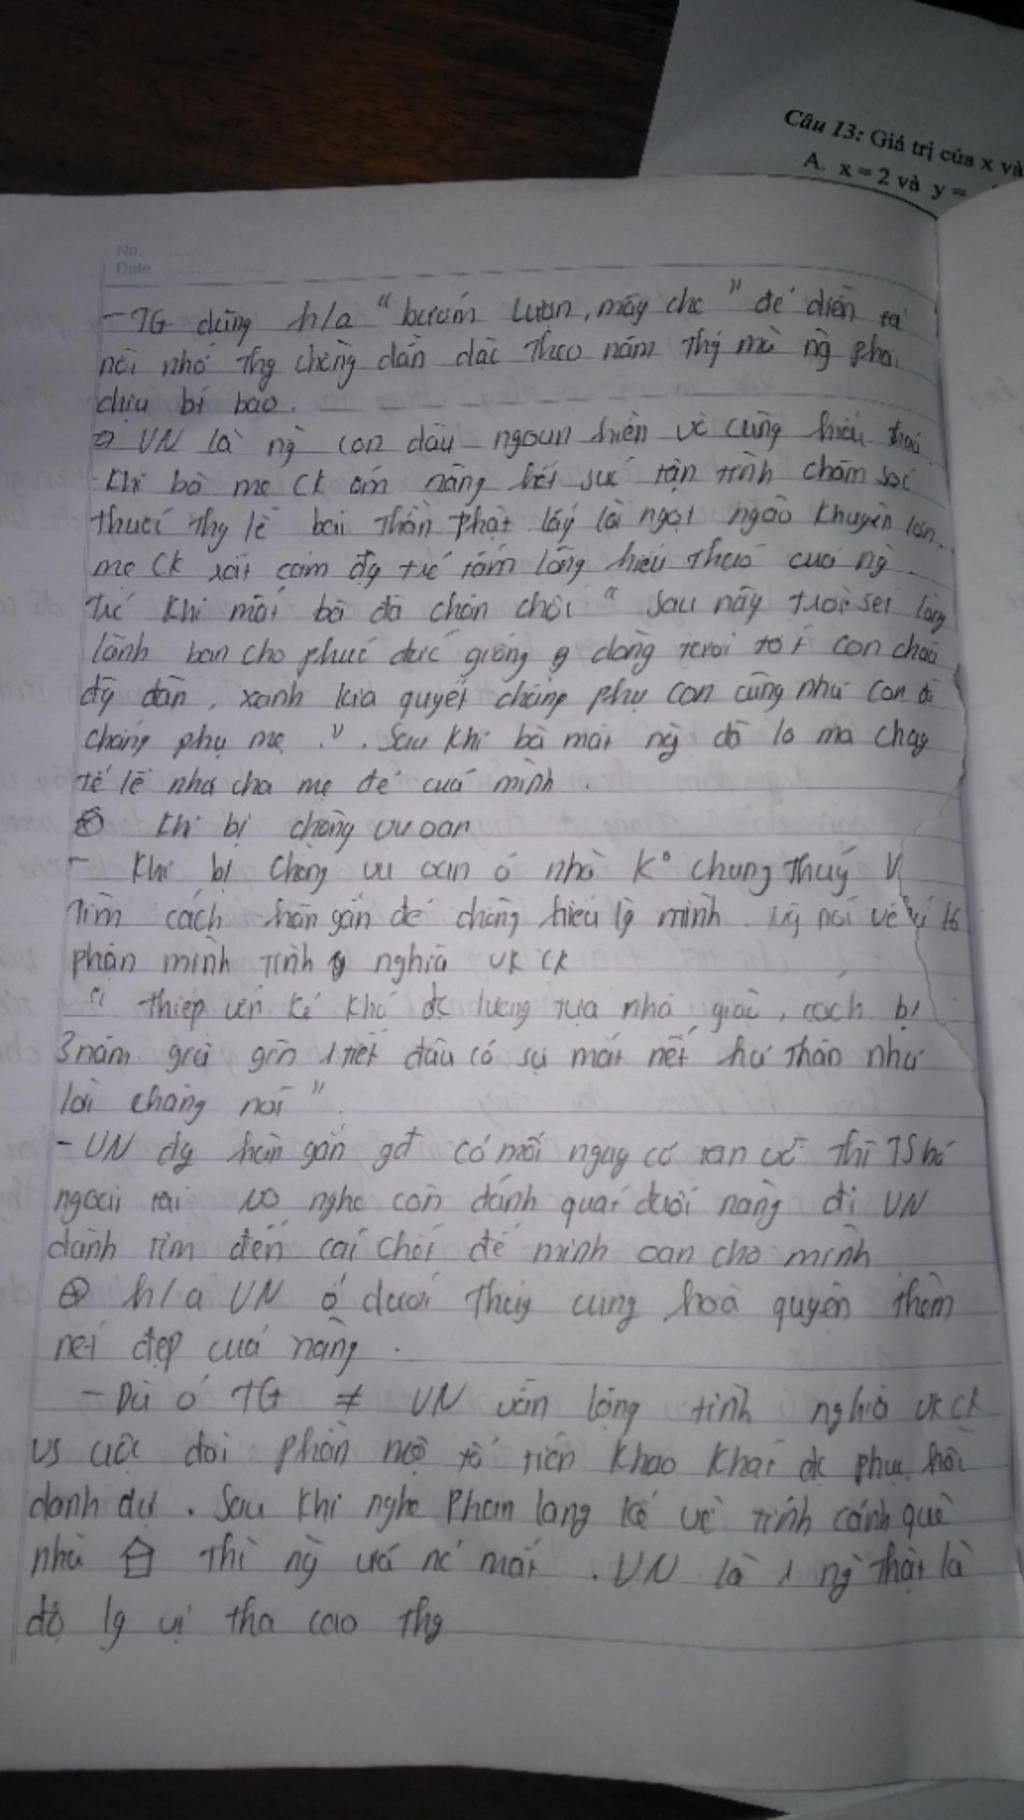 Câu 13: Giá trị của x và
A. x = 2 và y =
No.
Date
- TG dùng h/a "bướm lượn, mây che" để diễn tả
nỗi nhớ thg chồng dằn dặc theo năm thg mà ng phải
chịu bí bao.
VN là ng con dâu ngoan hiền vô cùng hiếu thảo
- Khi bà mẹ CK ốm nàng hết sức tận tình chăm sóc
thuốc thg lễ bái thần phật lấy lời ngọt ngào khuyên lơn.
mẹ CK rất cảm đg từ tấm lòng hiếu thảo của ng.
Từ khi mất bà đã chăn chối "Sau này trời sét lòng
lành ban cho phúc đức giống dòng tươi tốt con cháu
đg đàn, xanh kia quyết chẳng phụ con cũng như con đã
chẳng phụ mẹ.". Sau khi bà mất ng đã lo ma chay
tế lễ như cha mẹ đẻ của mình.
Khi bị chồng vu oan
- Khi bị chồng vu oan ở nhà K° chung thuỷ V
tìm cách hàn gắn để chồng hiểu lg mình. ng nói về
phận mình tình nghĩa vk ck
"thiếp vốn kẻ khó đc nương tựa nhà giàu, cách bị
3 năm giữ gìn 1 tiết đâu có sự mất nết hư thân như
lời chàng nói".
- VN dg hàn gắn gđ có mối nguy cơ tan vỡ thì TS bỏ
ngoài tai k° nghe còn đánh quát đuổi nàng đi VN
đành tìm đến cái chết để minh oan cho mình
h/a VN ở dưới thuỷ cung hoà quyện thêm
nét đẹp của nàng.
- Dù ở TG ≠ VN vẫn lòng tình nghĩa vk ck
vs cuộc đời phần mộ tổ tiên khao khát đc phục hồi
danh dự. Sau khi nghe Phan lang kể về tình cảnh quê
nhà thì ng ứa nc mắt. VN là 1 ng thật là
độ lg vị tha cao thg